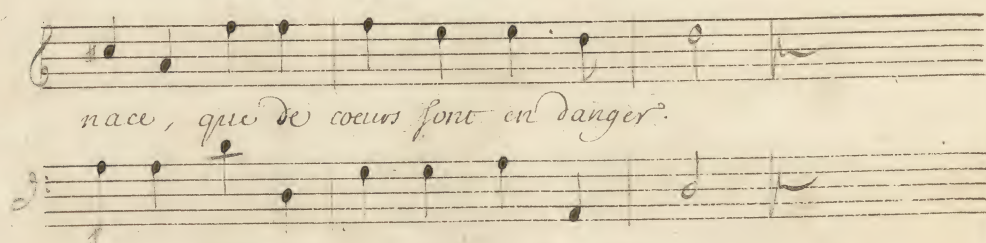 nace, que de coeurs sont en danger.